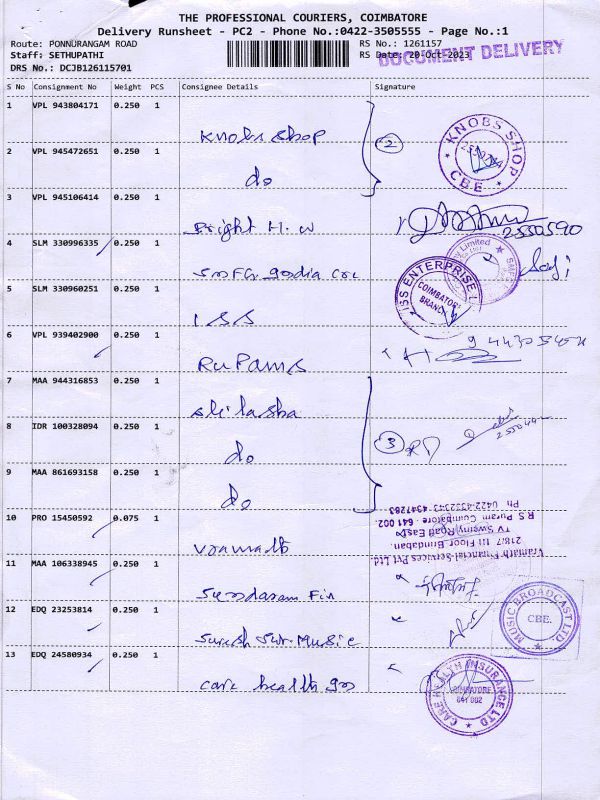 THE PROFESSIONAL COURIERS, COIMBATORE
Delivery Runsheet - PC2 - Phone No.:0422-3505555 - Page No.:1
Route: PONNURANGAM ROAD
Staff: SETHUPATHI
DRS No.: DCJB126115701
RS No.: 1261157
RS Date: 20-Oct-2023
DOCUMENT DELIVERY
S No Consignment No Weight PCS Consignee Details Signature
1 VPL 943804171 0.250 1
Knobs Shop
2
KNOBS SHOP
CBE
2 VPL 945472651 0.250 1
do
3 VPL 945106414 0.250 1
Bright H. W
2550590
4 SLM 330996335 0.250 1
Limited
5 SLM 330960251 0.250 1
ISS
ISS ENTERPRISE
COIMBATORE
BRANCH
6 VPL 939402900 0.250 1
RuPams
7 MAA 944316853 0.250 1
8 IDR 100328094 0.250 1
do
3
9 MAA 861693158 0.250 1
do
10 PRO 15450592 0.075 1
Vramath
Vramath Financial Services Pvt Ltd
218/7 III Floor Brindaban
TV Swamy Road East
R.S. Puram, Coimbatore - 641 002.
11 MAA 106338945 0.250 1
Sundaram Fin
12 EDQ 23253814 0.250 1
Suresh Sur. Music
MUSIC BROADCAST LTD
CBE.
13 EDQ 24580934 0.250 1
Care health Ins
CARE HEALTH INSURANCE LTD
COIMBATORE
641 002